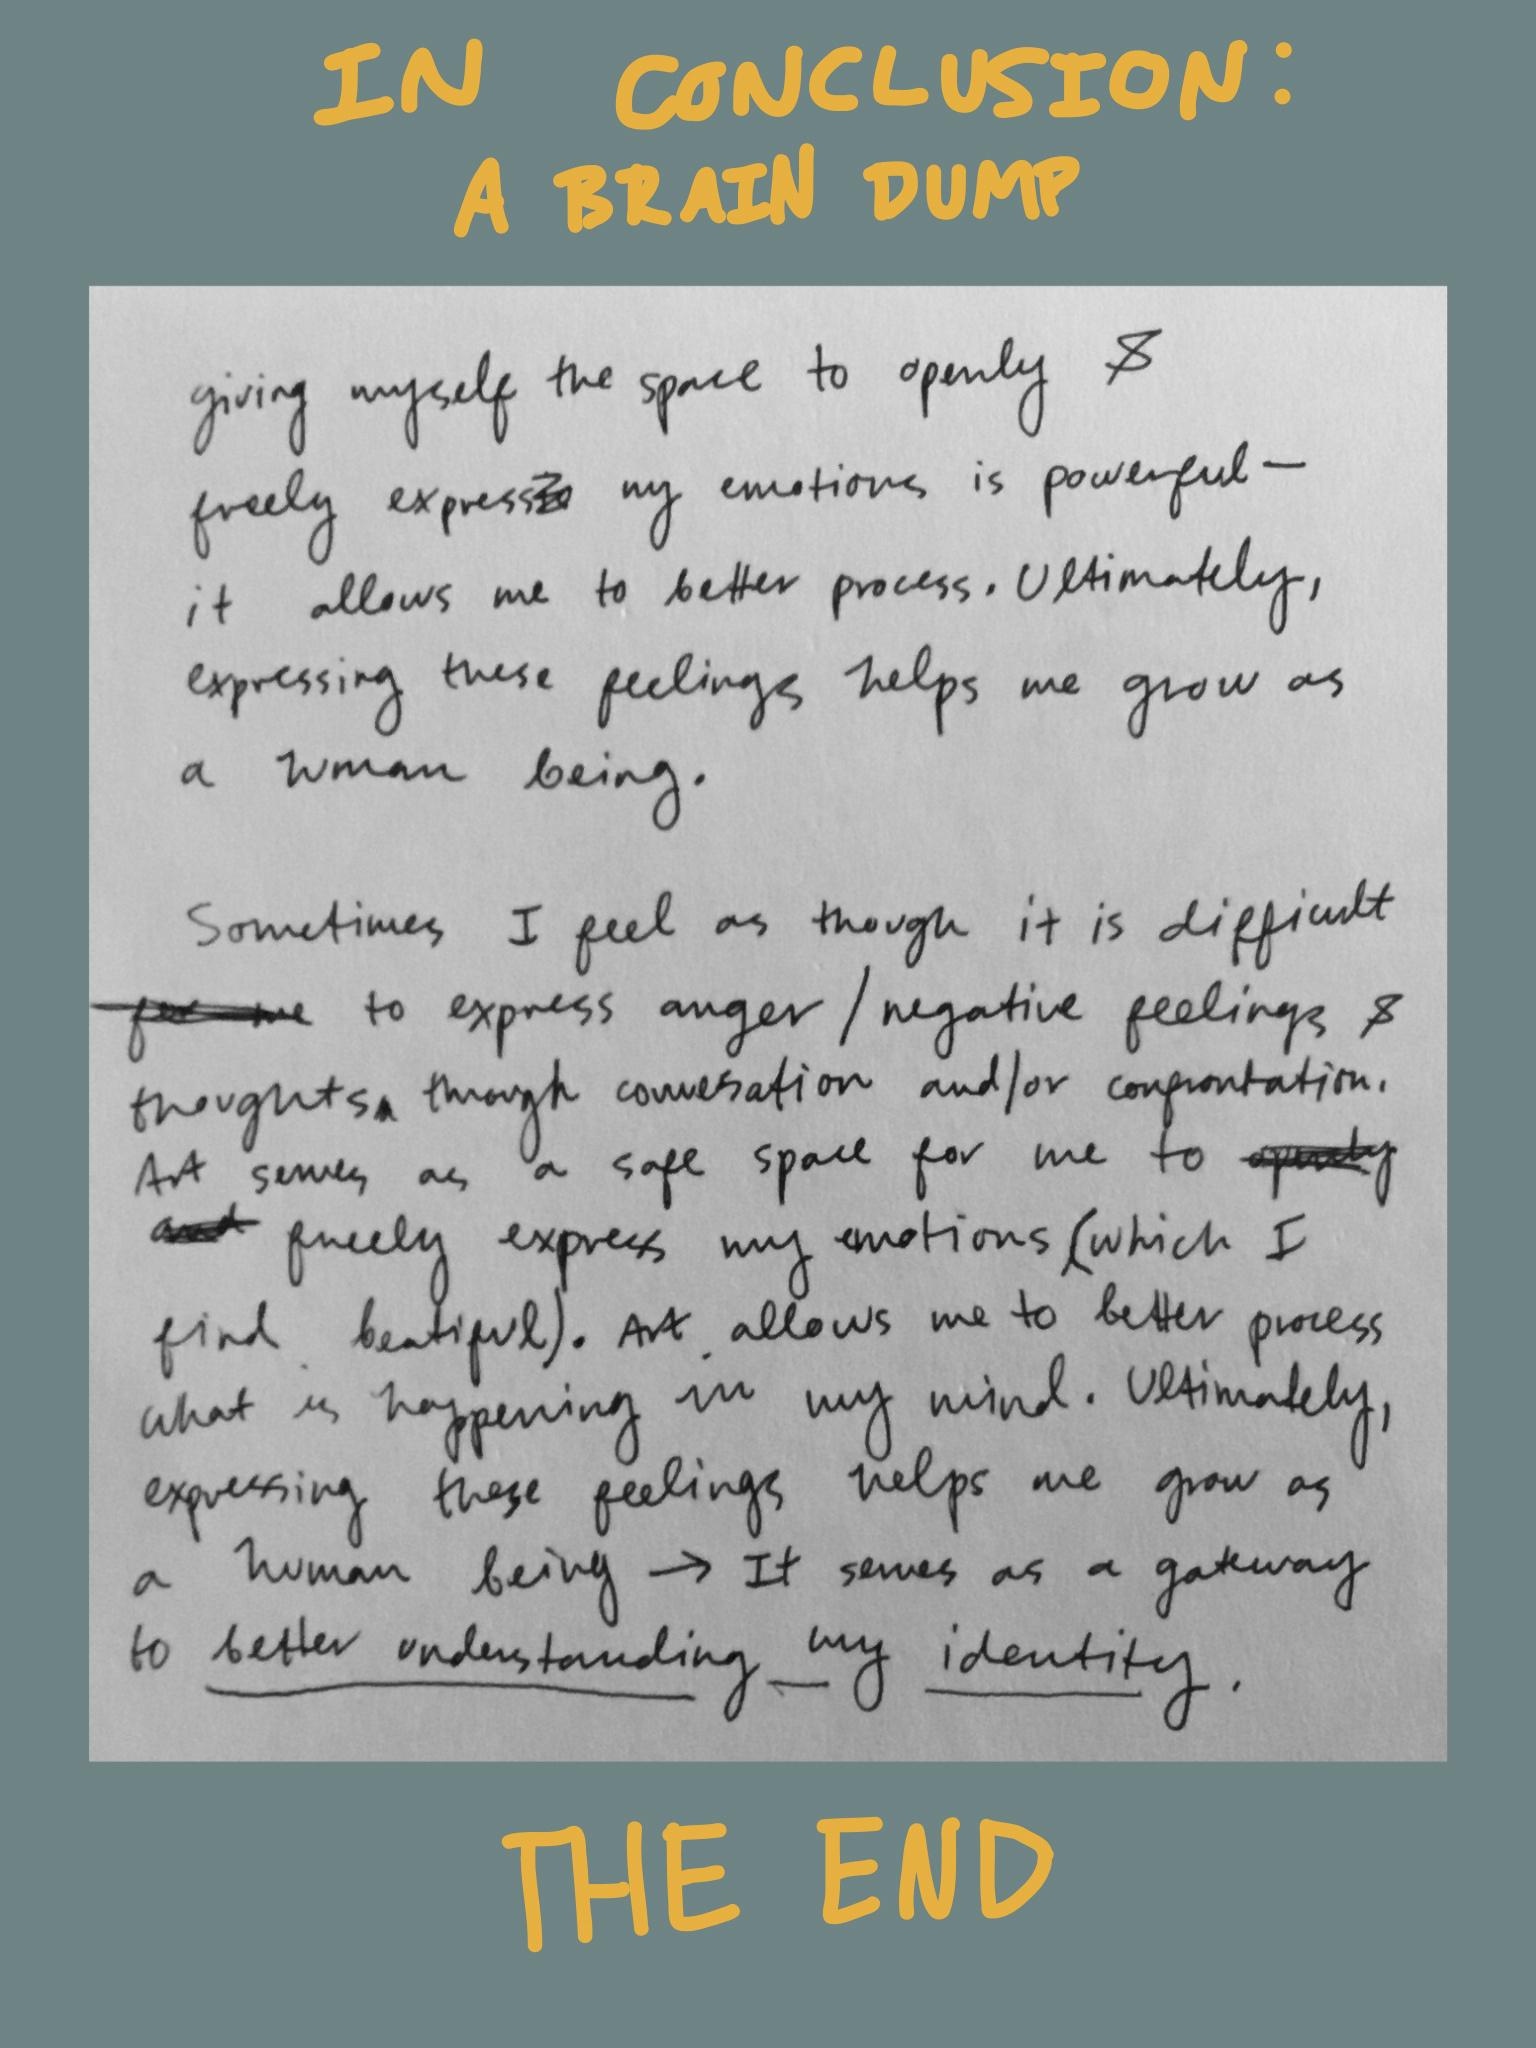 IN CONCLUSION:
A BRAIN DUMP
giving myself the space to openly &
freely express my emotions is powerful—
it allows me to better process. Ultimately,
expressing these feelings helps me grow as
a human being.
Sometimes I feel as though it is difficult
for me to express anger/negative feelings &
thoughts through conversation and/or confrontation.
Art serves as a safe space for me to openly
and freely express my emotions (which I
find beatiful). Art allows me to better process
what is happening in my mind. Ultimately,
expressing these feelings helps me grow as
a human being → It serves as a gateway
to better understanding my identity.
THE END